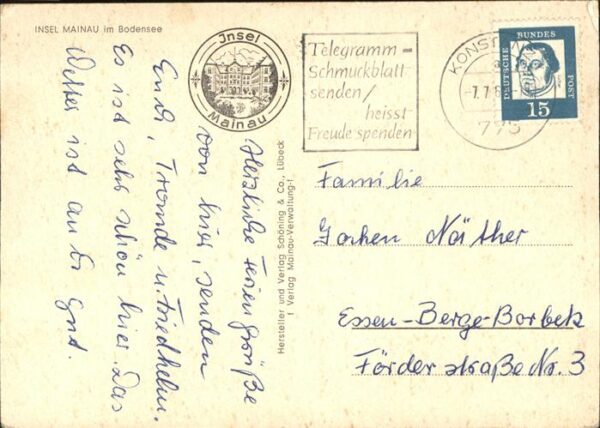 INSEL MAINAU im Bodensee
Insel
Mainau
Telegramm-
Schmuckblatt
senden/
heisst
Freude spenden
KONST
-7.7.6
775
DEUTSCHE
BUNDES
POST
15
Herzliche Feriengrüße
von hier, senden
Euch, Tromde u. Friedhelm.
Es ist sehr schön hier. Das
Wetter ist auch gut.
Hersteller und Verlag Schöning & Co., Lübeck
f Verlag Mainau-Verwaltung-f
Familie
Jochen Näther
Essen-Berge-Borbek
Förderstraße Nr. 3